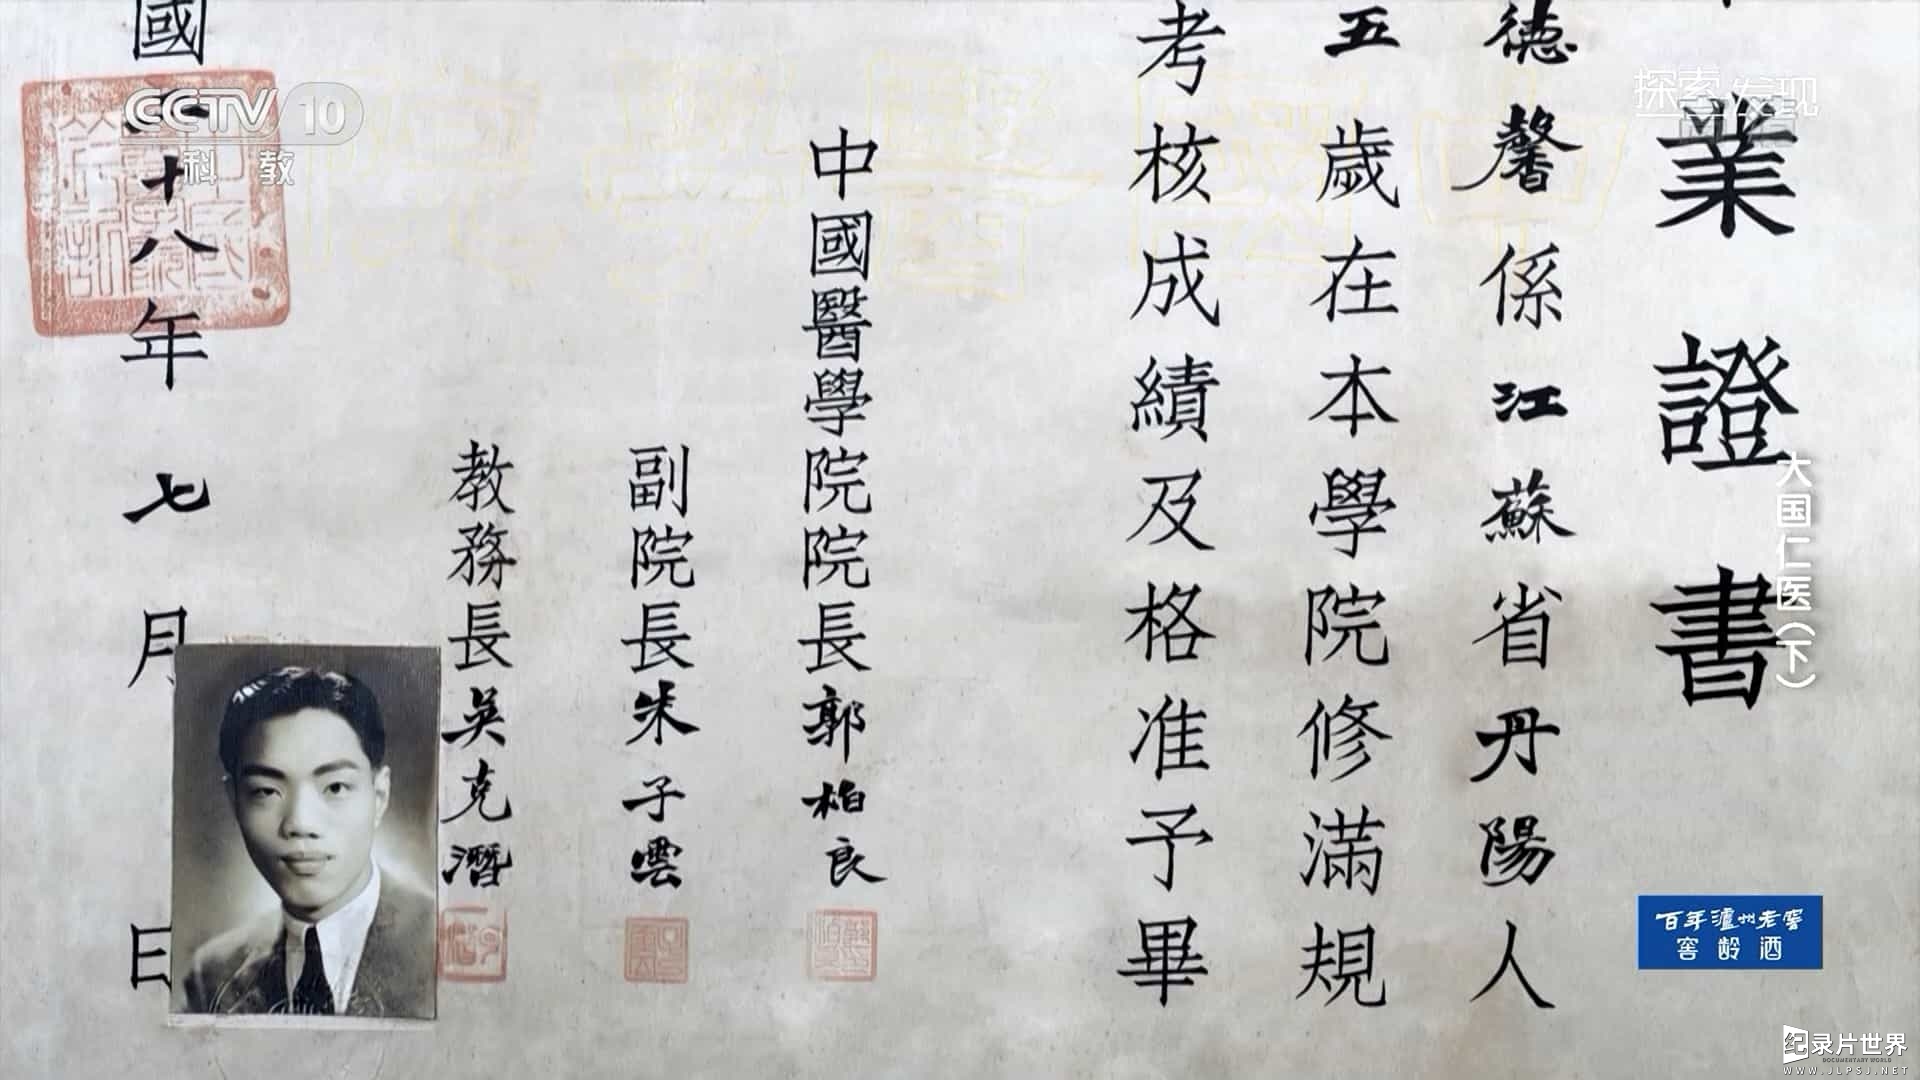 業證書
德馨係江蘇省丹陽人
五歲在本學院修滿規
考核成績及格准予畢
中國醫學院院長郭柏良
副院長朱子雲
教務長吳克潛
國二十八年七月 日
CCTV 10
科教
探索发现
大国仁医(下)
百年泸州老窖
窖龄酒
纪录片世界
DOCUMENTARY WORLD
WWW.JLPSJ.NET